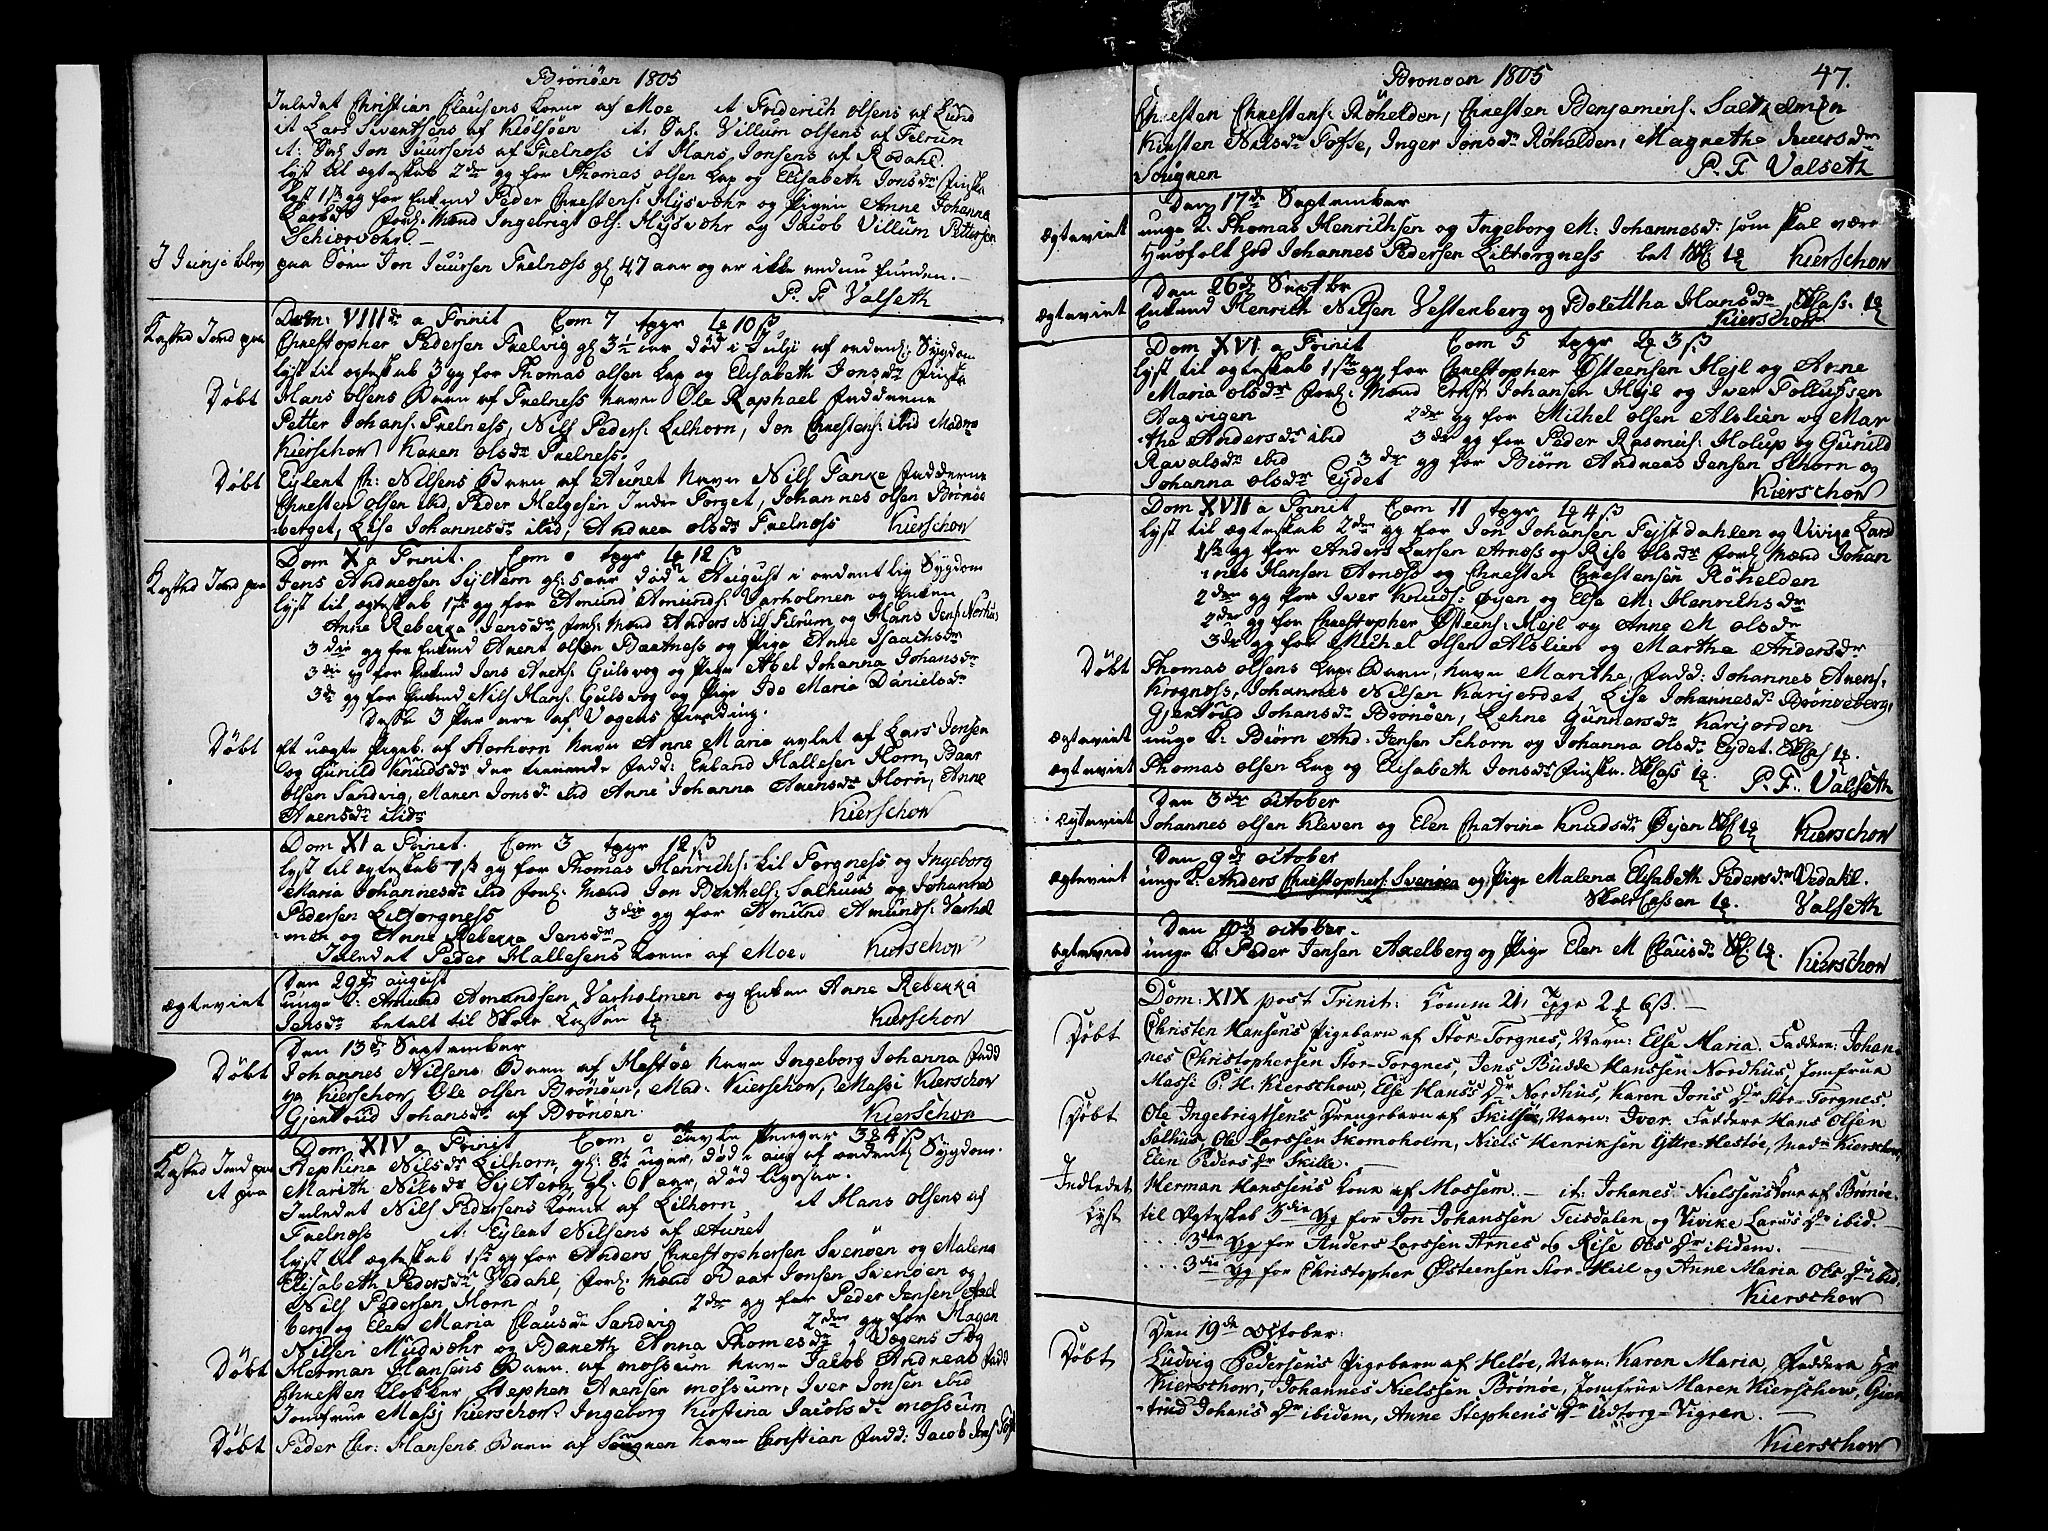 Brönöen 1805
Inledet Christian Clausens Kone af Moe it Friderich Olsens af Lund
it Lars Siventsens af Kiölsöen it: Villum Olsens af Felrum
it: Jon Juursens af Trelness it Hans Jonsens af Rodahl
lyst til egteskab 2den gg for Thomas Olsen Lap og Elisabeth Jonsdr finska
lyst 1ste gg for Enkmd Peder Christens: Hysvæhr og Pigen Anne Johanna
forl: Mænd Ingebrigt Ols: Hysvæhr og Jacob Villum Pettersen
Schiærvæhr
I Junji blev paa Söen Jon Juursen Trelness gl 47 aar og er ikke endnu funden.
P. F Valseth
Dom: VIII a Trinit Com 7 10 ß
Kasted Jord paa Christopher Pedersen Trelvig gl 3½ aar död i Julji af ordentl: Sygdom
lyst til egteskab 3 gg for Thomas Olsen Lap og Elisabeth Jonsdr finska
Döbt Hans Olsens Barn af Trelness navn Ole Raphael fadderne
Petter Johans: Trelness, Nils Peders: Lilhorn, Jon Christens: ibid Madme
Kierschow Karen Olsdr Trelness.
Döbt Eylert Ch: Nilsens Barn af Aunet navn Nils Tanke fadderne
Christen Olsen ibid, Peder Helgesen Indre Torget, Johannes Olsen Brönöe
berget, Lise Johannesdr ibid, Andrea Olsdr Trelness Kierschow
Dom X a Trinit. Com 0 12 ß
Kasted Jord paa Jens Andreasen Sylteren gl: 5 aar död i August i ordentlig Sygdom
lyst til egteskab 1ste gg for Amund Amunds: Varholmen og Enken
Anne Rebekka Jensdr forl: Mænd Anders Nils: Felrum og Hans Jens: Norhuus
3die gg for Enkmd Arent Olsen Baatness og Pige Anne Isaachsdr
3die gg for Enkmd Jens Arens: Gulsvog og Pige Abel Johanna Johansdr
3die gg for Enkmd Nils Hans: Gulsvog og Pige Ide Maria Danielsdr
Disse 3 Par ere af Vegens Prending.
Döbt Et uegte Pigeb. af Horhorn navn Anne Maria avlet af Lars Jonsen
og Gunild Knudsdr der tienende fadd: Erland Hallesen Horn, Baar
Olsen Sandvig, Maren Jonsd ibid Anne Johanna Arensdr Horn, Anne
Arensdr ibid Kierschow
Dom XI a Trinit. Com 3 12 ß
lyst til egteskab 1ste gg for Thomas Henrichs: Lil Torgness og Ingeborg
Maria Johannesdr ibid forl: Mænd Jon Berthels: Salhuus og Johannes
Pedersen Liltorgness 3die gg for Amund Amunds: Varhol
men og Anne Rebekka Jensdr
Inledet Peder Hallesens Kone af Moe. Kierschow
Den 29de august
Egteviet unge K: Amund Amundsen Varholmen og Enken Anne Rebekka
Jensdr betalt til Skole Cassen Kierschow
Den 13de September
Döbt Johannes Nilsens Barn af Hestöe navn Ingeborg Johanna fadd
Kierschow, Ole Olsen Brönöen, Mad: Kierschow, Massi Kierschow
Giertrud Johansdr af Brönöen. Kierschow
Dom XIV a Trinit Com 0 Tavle Penger 3 4 ß
Kasted Jord paa Stephina Nilsdr Lilhorn, gl: 8 uger, död i aug af ordentl Sygdom.
it paa Marith Nilsdr Sylteren, gl: 61 aar, död ligesaa.
Inledet Nils Pedersens Kone af Lilhorn it Hans Olsens af
Trelness it: Eylert Nilsens af Aunet
lyst til egteskab 1ste gg for Anders Christophersen Svenöen og Malena
Elisabeth Pedersdr Vedahl, forl: Mænd Baar Jonsen Svenöen og
Nils Pedersen Horn 2den gg for Peder Jensen Axel
berg og Elen Maria Clausdr Sandvig 2den gg for Hagen
Nilsen Mudvæhr og Bereth Anna Thomesdr i Vegens Sog
Döbt Herman Hansens Barn af Mossum navn Jacob Andreas fadd
Christen Klokker, Stephen Arensen Mossum, Iver Jonsen ibid
Jomfrue Massi Kierschow Ingeborg Kirstina Jacobsdr Mossum
Döbt Peder Chr: Hansens Barn af Sörgnen navn Christian fadd: Jacob Jens: Tofte
Brönöen 1805 47.
Christen Christens: Röhelden, Christen Benjamins: Saltzelmen
Kirsten Nilsdr Tofte, Inger Jonsdr Röhelden, Magrethe Juursdr
Sörgnen P. F Valseth
Den 17de September
Egteviet unge K: Thomas Henrichsen og Ingeborg M: Johannesdr som skal være
Huusfolk hos Johannes Pedersen Liltorgness bet Kierschow
Den 26de Septbr
Egteviet Enkmd Henrich Nilsen Vestenberg og Bolettha Hansdr
Kierschow
Dom XVI a Trinit Com 5 2 3 ß
lyst til egteskab 1ste gg for Christopher Østeensen Heyl og Anne
Maria Olsdr forl: Mænd Ernst Johansen Heyl og Iver Tollufsen
Aagvigen 2den gg for Michel Olsen Alslien og Mar
tha Andersdr ibid 3die gg for Peder Rasmus: Holup og Gunild
Ravalsdr ibid 3die gg for Biörn Andreas Jensen Schorn og
Johanna Olsdr Eydet Kierschow
Dom XVII a Trinit Com 11 4 ß
lyst til egteskab 2den gg for Jon Johansen Teistdahlen og Vivike Larsd
1ste gg for Anders Larsen Arness og Rise Olsdr forl: Mænd Johan
nes Hansen Arness og Christen Christensen Röhelden
2den gg for Iver Knuds: Öyen og Else M: Henrichsdr
2den gg for Christopher Østeens: Heyl og Anne M Olsdr
3die gg for Michel Olsen Alslien og Martha Andersdr
Döbt Thomas Olsens Lap: Barn, navn Marithe, fadd: Johannes Arens:
Krogness, Johannes Nilsen Karijordet, Lise Johannesdr Brönöeberg,
Giertrud Johansdr Brönöen, Lehne Gunnersdr Karijorden
Egteviet unge K: Biörn And: Jensen Schorn og Johanna Olsdr Eydet.
Egteviet Thomas Olsen Lap og Elisabeth Jonsdr finska. P. F. Valseth
Den 3die October
Egteviet Johannes Olsen Kleven og Elen Chatrina Knudsdr Öyen Kierschow
Den 9de October
Egteviet unge K: Anders Christophers: Svenöen og Pige Malena Elisabeth Pedersdr Vedahl.
Skole Cassen Valseth
Den 10de October
Egteviet unge K: Peder Jensen Axelberg og Pige Elen M Clausdr Kierschow
Dom: XIX post Trinit: Comm 21, 2 6ß.
Döbt Christen Hansens Pigebarn af Stor-Torgnes, Navn: Else Maria. Faddere: Johan-
nes Christophersen Stor-Torgnes, Jens Budde Hanssen Nordhus, Jomfrue
Massi P. H. Kierschow, Else Hanss Dr Nordhus, Karen Jons Dr Stor-Torgnes.
Döbt Ole Ingebrigtsen's Drengebarn af Skilsöe, Navn: Iver. Faddere Hans Olsen
Salhus, Ole Larssen Skomoholm, Niels Henriksen Yttre-Hestöe, Madm Kierschow,
Elen Peders Dr Skille.
Indledet Herman Hanssen's Kone af Mossem. it: Johanes Nielssens Kone af Brönöe.
Lyst til Egteskab 3die Gg for Jon Johanssen Teisdalen og Vivike Larsis Dr ibid.
3die Gg for Anders Larssen Arnes og Rise Ols Dr ibidem.
3die Gg for Christopher Østeensen Stor-Heil og Anne Maria Ols Dr ibid.
Kierschow
Den 19de October:
Döbt Ludvig Pedersen's Pigebarn af Helöe, Navn: Karen Maria, Faddere Hr
Kierschow, Johannes Nielssen Brönöe, Jomfrue Maren Kierschow, Gier-
trud Johan's Dr ibidem, Anne Stephens Dr Udtorg-Vigren.
Kierschow